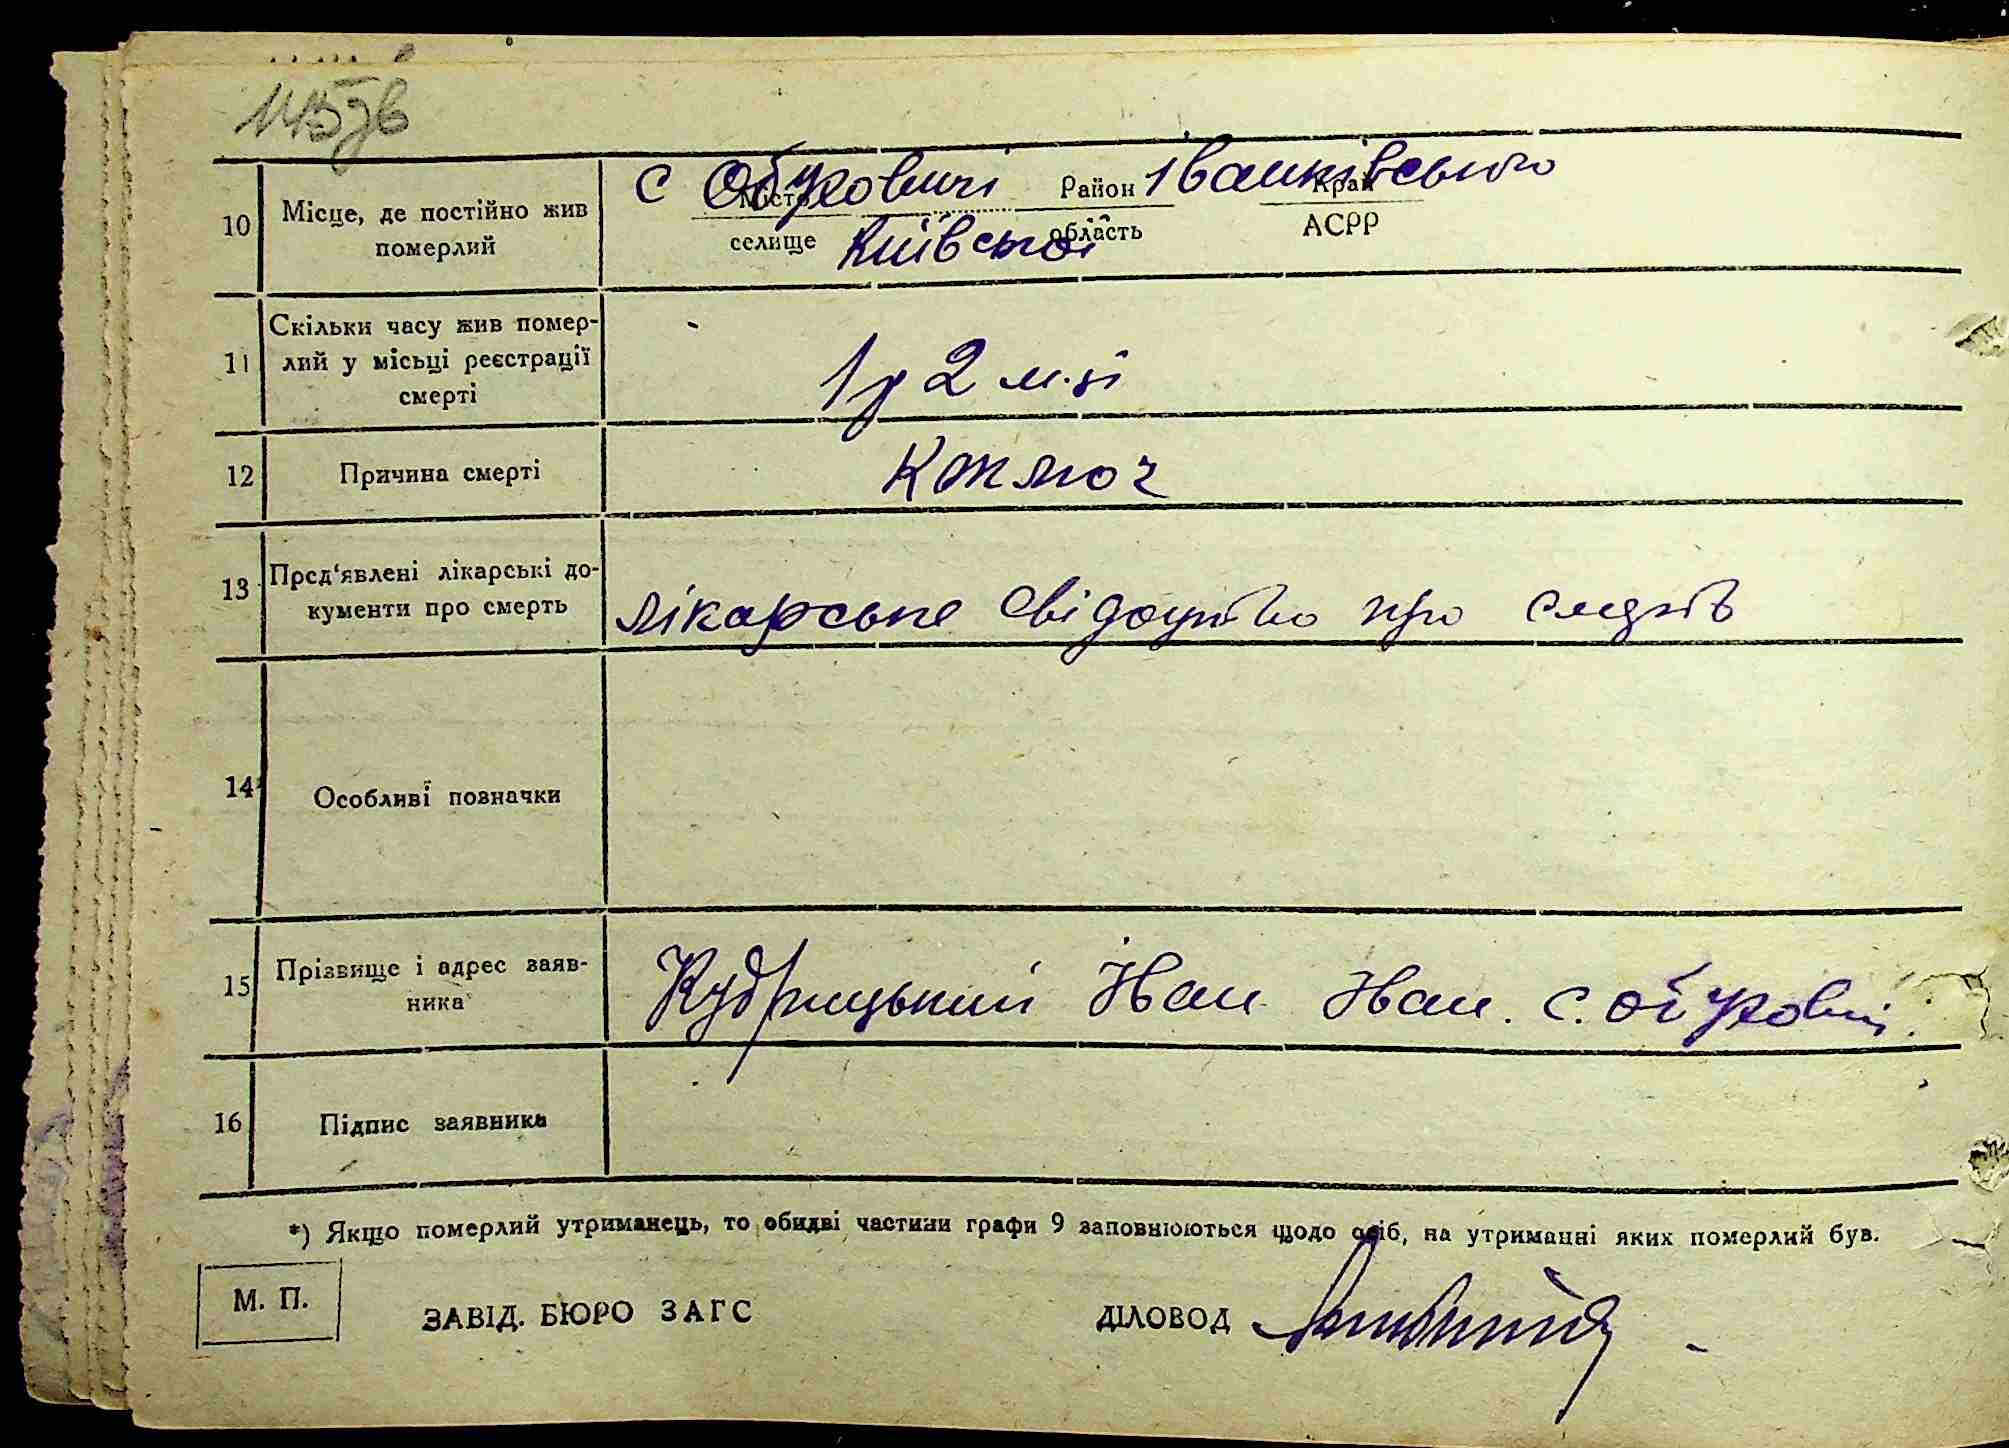 145 зв
10 Місце, де постійно жив померлий
с Обуховичі Район Іванківського Край
Місто
селище Київської область АСРР
11 Скільки часу жив помер-
лий у місьці реєстрації
смерті
1 р 2 м-ці
12 Причина смерті
Коключ
13 Пред'явлені лікарські до-
кументи про смерть
лікарське свідоцтво про смерть
14 Особливі позначки
15 Прізвище і адрес заяв-
ника
Кудрицький Іван Іван. с. Обухович.
16 Підпис заявника
*) Якщо померлий утриманець, то обидві частини графи 9 заповнюються щодо осіб, на утриманні яких померлий був.
М. П.
ЗАВІД. БЮРО ЗАГС
ДІЛОВОД